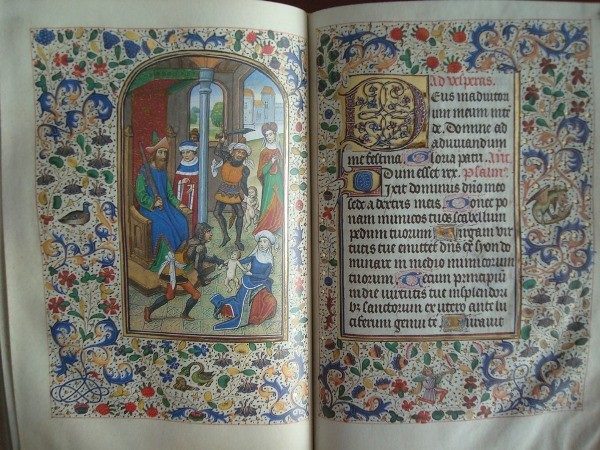 Ad vesperas.
Deus in adiutori
um meum inte
de. Domine ad
adiuuandum
me festina. Gloria patri. Ant.
Dum esset rex. Psalm⁹
Dixit dominus dno meo
sede a dextris meis. Donec po
nam inimicos tuos scabellum
pedum tuorum. Virgam vir
tutis tue emittet dns ex syon do
minare in medio inimicorum
tuorum. Tecum principiu
in die virtutis tue in splendori
bꝫ sanctorum ex utero ante lu
ciferum genui te. Iurauit